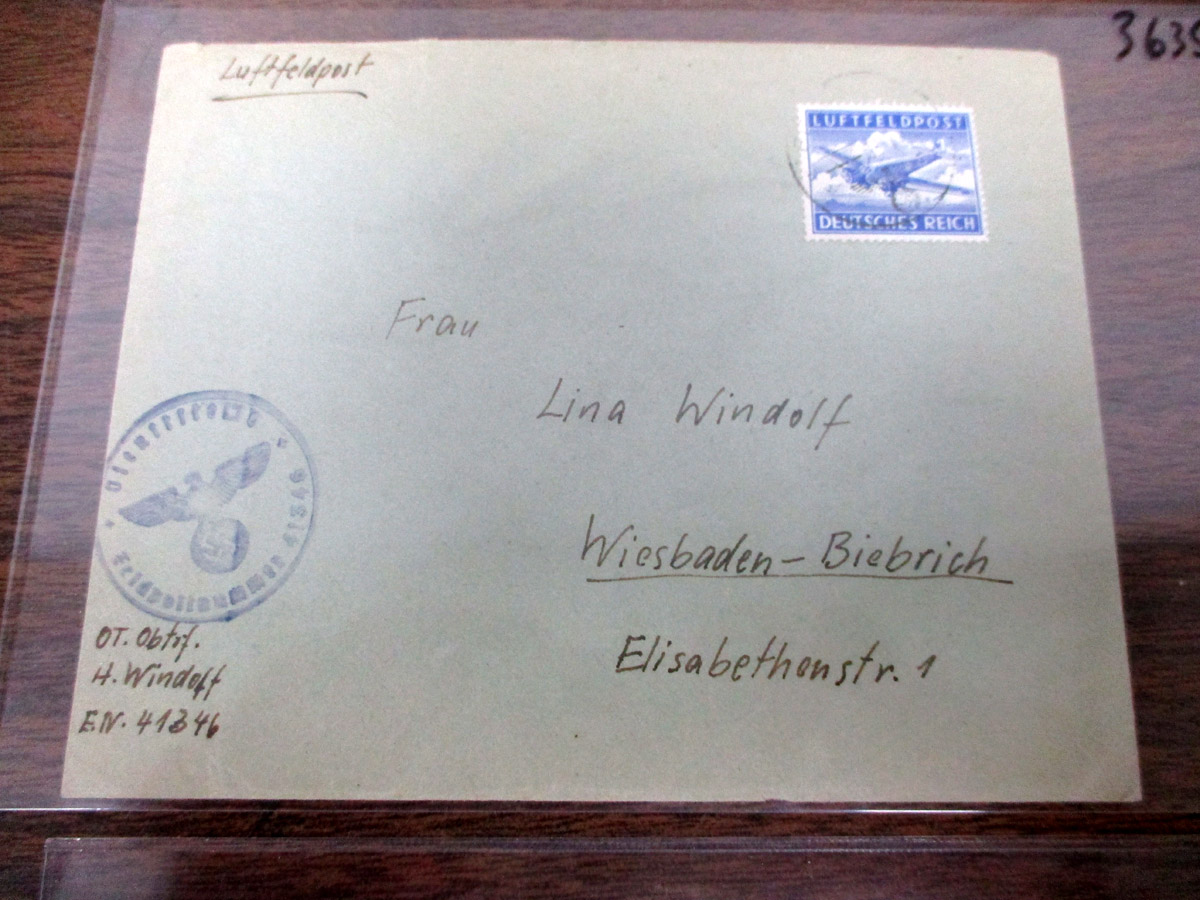 3639
Luftfeldpost
LUFTFELDPOST
DEUTSCHES REICH
Frau
Lina Windolf
Wiesbaden-Biebrich
Elisabethenstr. 1
Dienststelle
Feldpostnummer 41346
OT. Obtrf.
H. Windolf
F.N. 41346